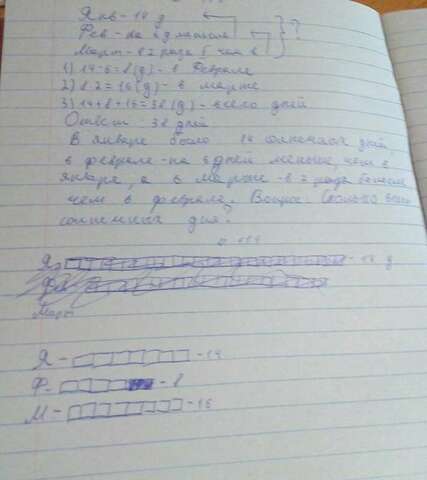 Янв - 14 д
Фев - на 6 д меньше
Март - в 2 раза б чем в
?
1) 14-6=8(д) - в Феврале
2) 8·2=16(д) - в марте
3) 14+8+16=38(д) - всего дней
Ответ: 38 дней
В январе было 14 солнечных дней,
в феврале - на 6 дней меньше чем в
январе, а в марте - в 2 раза больше
чем в феврале. Вопрос: Сколько всего
солнечных дня?
Я - 14 д
Март
Я - 14
Ф - 8
М - 16